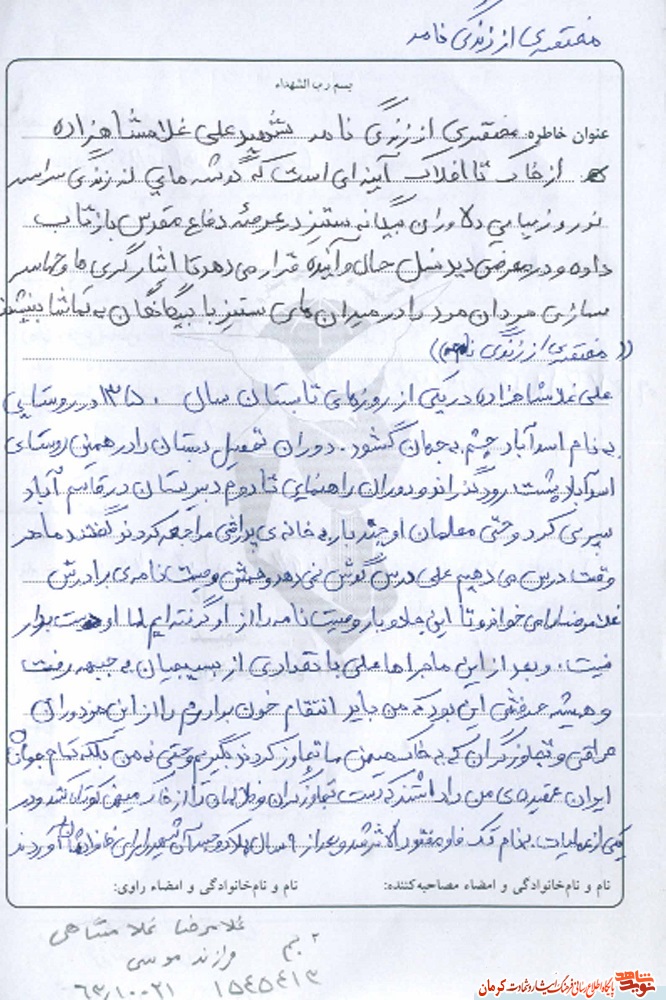 مختصری از زندگی نامه
بسم رب الشهداء
عنوان خاطره: مختصری از زندگی نامه شهید علی غلامشاهزاده
از خاک تا افلاک آینه ای است که گوشه هایی از زندگی سراسر
نور و زیبایی دلاوران بیگانه ستیز در عرصه دفاع مقدس بازتاب
داده و در معرض دید نسل حال و آینده قرار می دهد تا ایثارگری ها و حماسه
سازی مردان مرد را در میدان های ستیز با بیگانگان به تماشا بنشینند
((مختصری از زندگی نامه))
علی غلامشاهزاده در یکی از روزهای تابستان سال ۱۳۵۰ در روستایی
به نام اسدآباد چشم به جهان گشود. دوران تحصیل دبستان را در همین روستای
اسدآباد پشت رود گذراند و دوران راهنمایی تا دوم دبیرستان در قاسم آباد
سپری کرد و حتی معلمان او چند بار به خانه ی پدرش مراجعه کردند گفتند ما هر
وقت درس می دهیم علی درس گوش نمی دهد و همش وصیت نامه ی برادرش
غلامرضا را می خواند و تا این جا دو بار وصیت نامه را از او گرفته ایم اما او دست بردار
نیست. و بعد از این ماجراها علی با تعدادی از بسیجیان به جبهه رفت
و همیشه حرفش این بود که من باید انتقام خون برادرم را از این مزدوران
عراقی و تجاوزگران که به خاک میهن ما تجاوز کردند بگیرم و حتی نه من بلکه تمام جوانان
ایران عقیده ی من را داشتند که دست تجاوزگران و ظالمان را از خاک میهن کوتاه کنند و در
یکی از عملیات بنام تک فاو مفقود الاثر شد و بعد از ۹ سال پلاک و جسد آن شهید را برای خانواده اش آوردند
نام و نام خانوادگی و امضاء مصاحبه کننده: نام و نام خانوادگی و امضاء راوی:
غلامرضا غلامشاهی
فرزند موسی
۱۵۴۵۴۱۳
۶۳٫۱۰۰۲۱
نوید شاهد
پایگاه اطلاع رسانی فرهنگ ایثار و شهادت کرمان